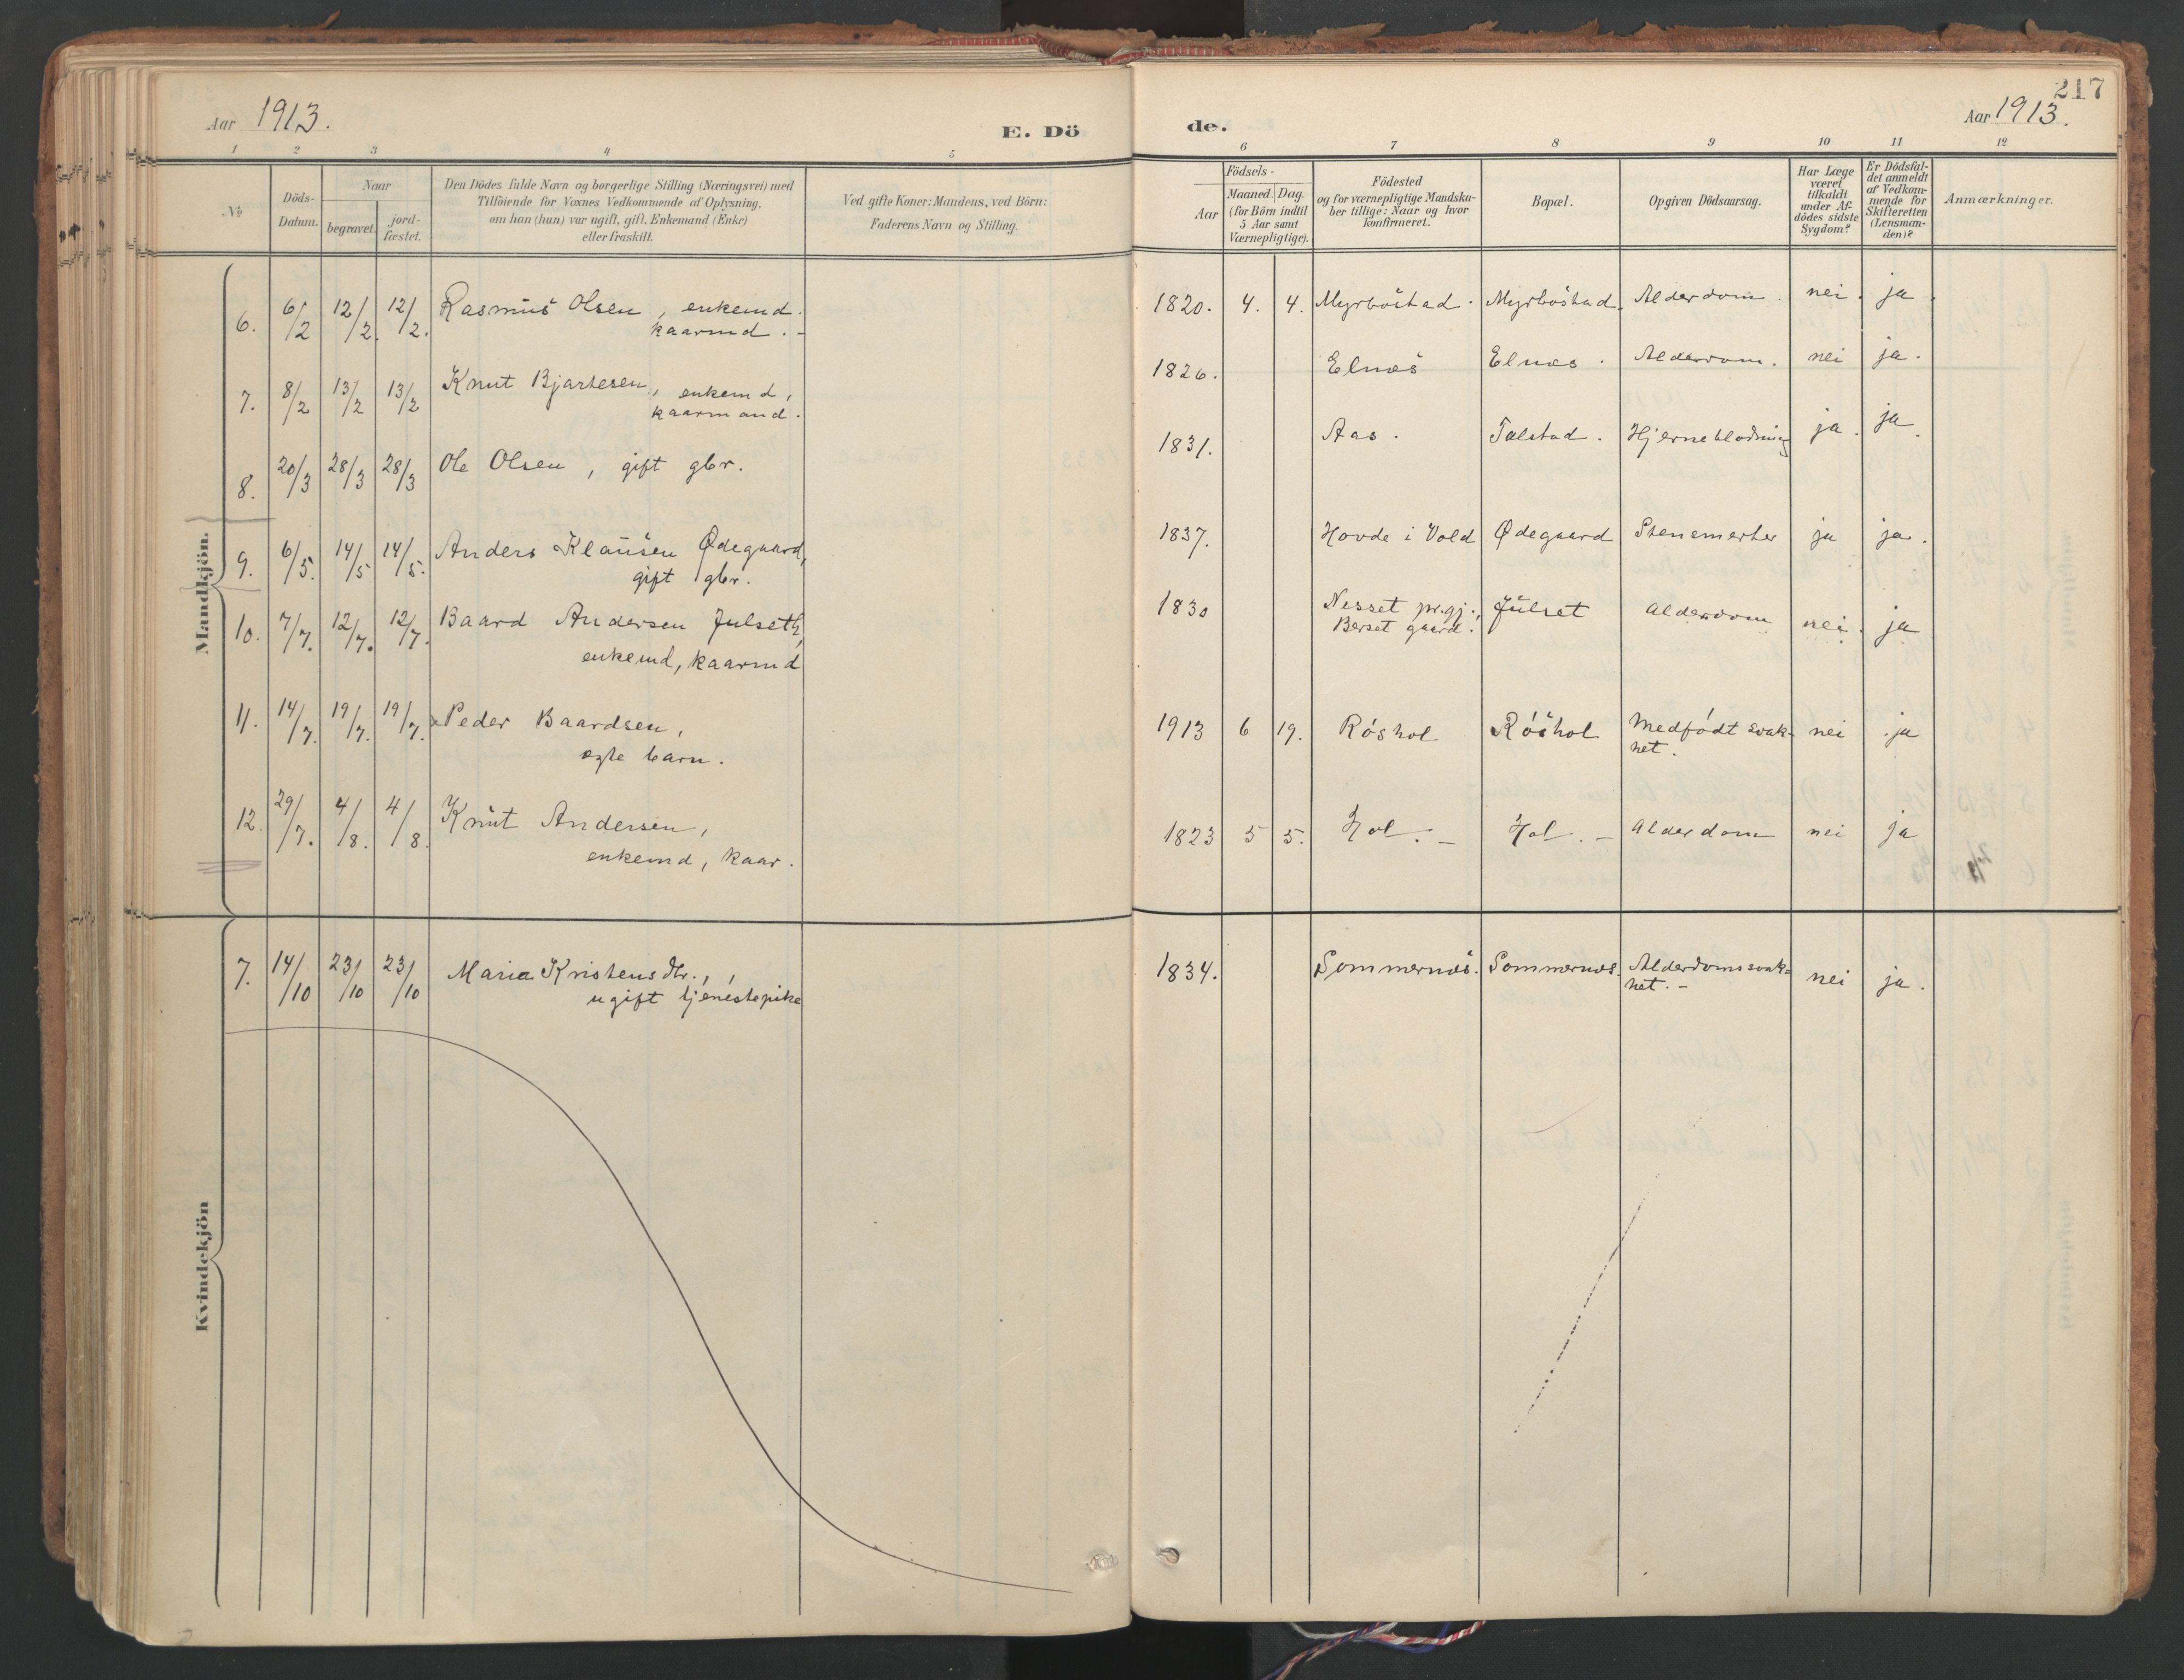 Aar 1913.
E. Dö
de.
217
Aar 1913.
1 2 3 4 5 6 7 8 9 10 11 12
No
Döds-Datum.
Naar
begravet.
jord-fæstet.
Den Dödes fulde Navn og borgerlige Stilling (Næringsvei) med
Tilföiende for Voxnes Vedkommende af Oplysning,
om han (hun) var ugift, gift, Enkemand (Enke)
eller fraskilt.
Ved gifte Koner: Mandens, ved Börn:
Faderens Navn og Stilling.
Födsels-
Aar
Maaned. Dag.
(for Börn indtil
5 Aar samt
Værnepligtige).
Födested
og for værnepligtige Mandska-
ber tillige: Naar og hvor
Konfirmeret.
Bopæl.
Opgiven Dödsaarsag.
Har Læge
været
tilkaldt
under Af-
dödes sidste
Sygdom?
Er Dödsfal-
det anmeldt
af Vedkom-
mende for
Skifteretten
(Lensman-
den)?
Anmærkninger.
Mandkjön.
6. 6/2 12/2. 12/2. Rasmus Olsen, enkemd. 1820. 4. 4. Myrbøstad. Myrbøstad. Alderdom. nei. ja.
kaarmd. -
7. 8/2 13/2 13/2 Knut Bjartesen, enkemd, 1826. Elnæs Elnæs. Alderdom. nei ja.
kaarmand.
8. 20/3 28/3 28/3 Ole Olsen, gift gbr. 1831. Aas. Talstad. Hjerneblødning ja. ja.
9. 6/5. 14/5 14/5. Anders Klausen Ødegaard, 1837. Hovde i Vold Ødegaard Stensmerter ja ja.
gift gbr.
10. 7/7. 12/7. 12/7. Baard Andersen Julseth, 1830 Nesset pr.gj., Julset Alderdom nei. ja
enkemd, kaarmd Berset gaard.
11. 14/7. 19/7. 19/7. Peder Baardsen, 1913 6 19. Røshol Røshol Medfødt svak- nei ja
ægte barn. het.
12. 29/7. 4/8. 4/8. Knut Andersen, 1823 5 5. Hol. - Hol. - Alderdom nei ja
enkemd, kaar.
Kvindekjön
7. 14/10 23/10 23/10 Maria Kristensdtr., 1834. Sommernæs. Sommernæs. Alderdomssvak- nei ja.
ugift tjenestepike het. -